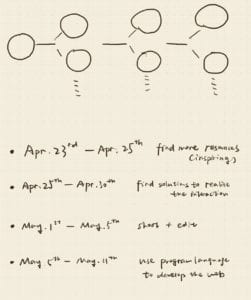 • Apr. 23rd – Apr. 25th find more resources
(inspiring)
• Apr. 25th – Apr. 30th find solutions to realize
the interaction
• May. 1st – May. 5th shoot + edit
• May 5th – May. 11th use program language
to develop the web